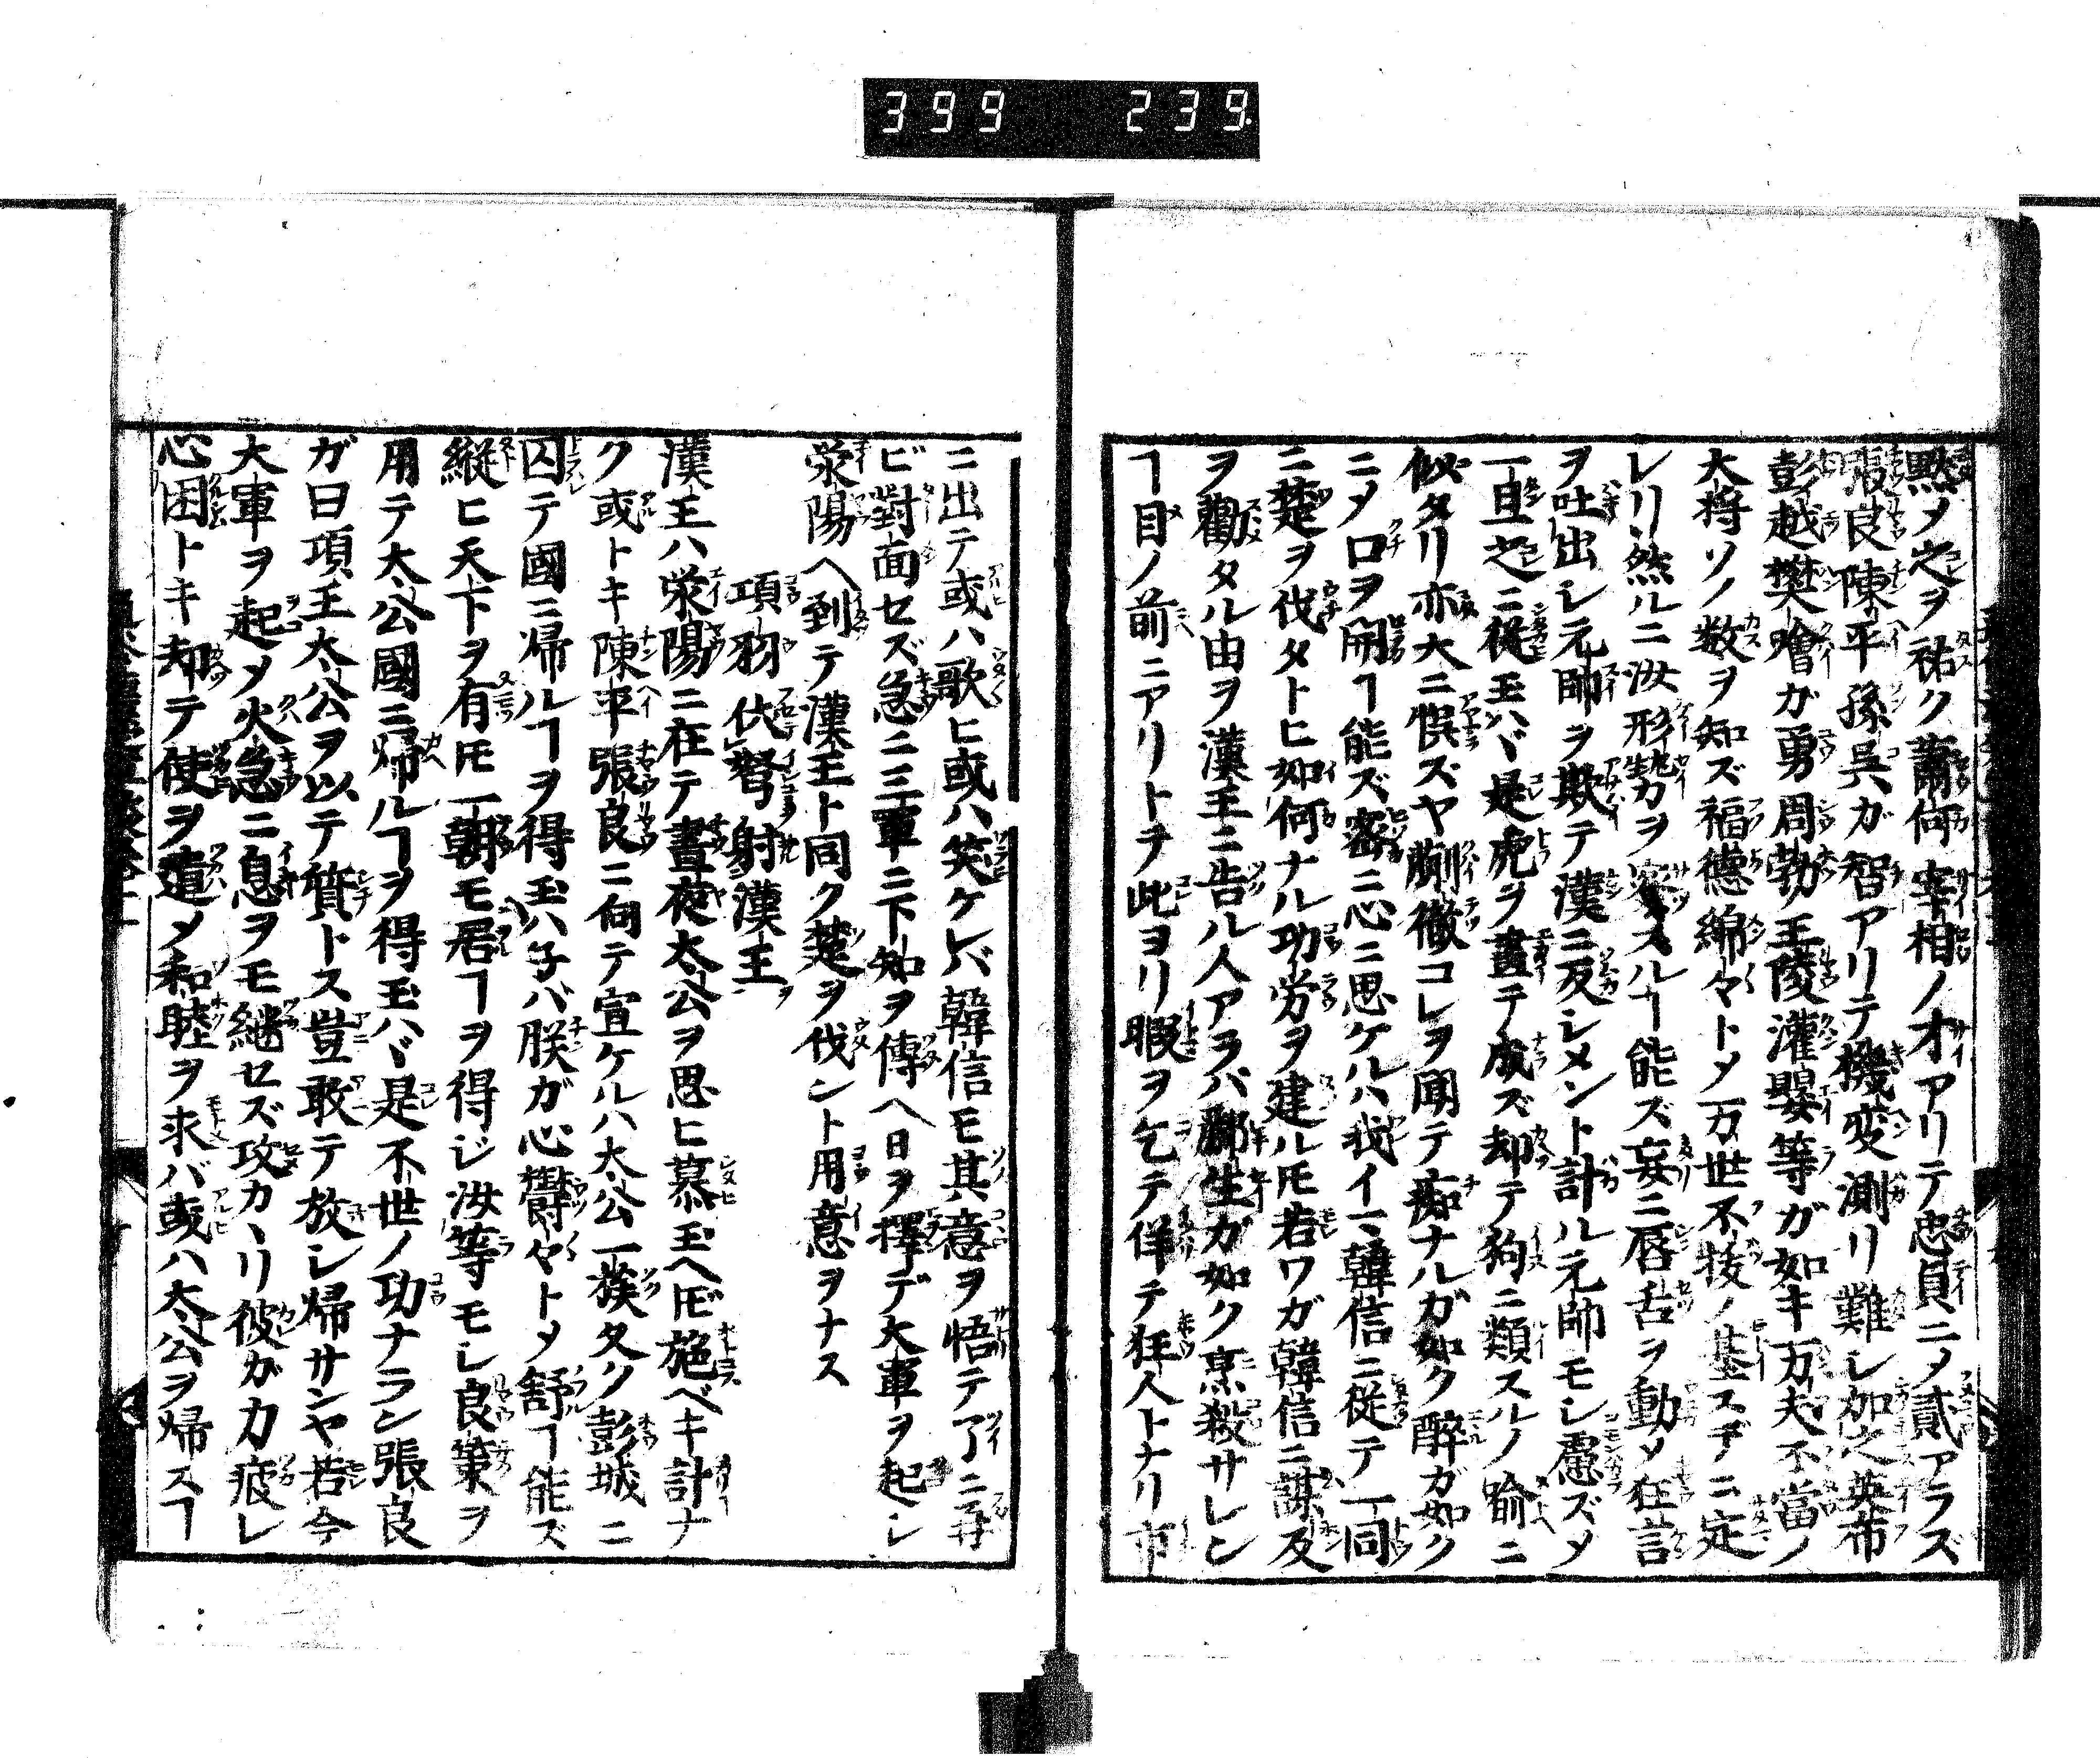 399 239
黙メ之ヲ祐ク蕭何宰相ノオアリテ忠貞ニメ貳アラズ
張良陳平孫呉ガ智アリテ機変測リ難レ加之英布
彭越樊噲ガ勇周勃王陵灌嬰等ガ如キ万夫不當ノ
大将ソノ数ヲ知ズ福徳綿々トメ万世不抜ノ基ス乎ニ定
レリ然ルニ汝形勢ヲ察スルヿ能ズ妄ニ唇舌ヲ動メ狂言
ヲ吐出レ元帥ヲ欺テ漢ニ反レメント計ル元帥モレ慮ズメ
一旦之ニ従玉ハヾ是虎ヲ畫テ成ズ却テ狗ニ類スルノ喩ニ
似タリ亦大ニ悞ズヤ蒯徹コレヲ聞テ痴ナルガ如ク醉ガ如ク
ニメ口ヲ開ヿ能ズ密ニ心ニ思ケルハ我イマ韓信ニ従テ一同
ニ楚ヲ伐タトヒ如何ナル功労ヲ建ルモ若ワガ韓信ニ謀反
ヲ勸タル由ヲ漢王ニ告ル人アラバ酈生ガ如ク烹殺サレン
ヿ目ノ前ニアリトヲ此ヨリ暇ヲ乞テ佯テ狂人トナリ市
ニ出テ或ハ歌ヒ或ハ笑ケレバ韓信モ其意ヲ悟テ了ニ再
ビ對面セズ急ニ三軍ニ下知ヲ傳ヘ日ヲ擇デ大軍ヲ起レ
滎陽ヘ到テ漢王ト同ク楚ヲ伐ント用意ヲナス
項羽伏弩射漢王
漢王ハ滎陽ニ在テ晝夜太公ヲ思ヒ慕玉ヘドモ施ベキ計ナ
ク或トキ陳平張良ニ向テ宣ケルハ太公一族久ク彭城ニ
囚テ國ニ帰ルヿヲ得玉ハ子バ朕ガ心欝々トメ舒ヿ能ズ
縦ヒ天下ヲ有モ一朝モ居ヿヲ得ジ汝等モレ良策ヲ
用テ太公國ニ帰ルヿヲ得玉ハヾ是不世ノ功ナラン張良
ガ曰項王太公ヲ以テ質トス豈敢テ放レ帰サンヤ若今
大軍ヲ起メ火急ニ息ヲモ継セズ攻カヽリ彼ガ力疲レ
心困トキ却テ使ヲ遣メ和睦ヲ求バ或ハ太公ヲ帰スヿ